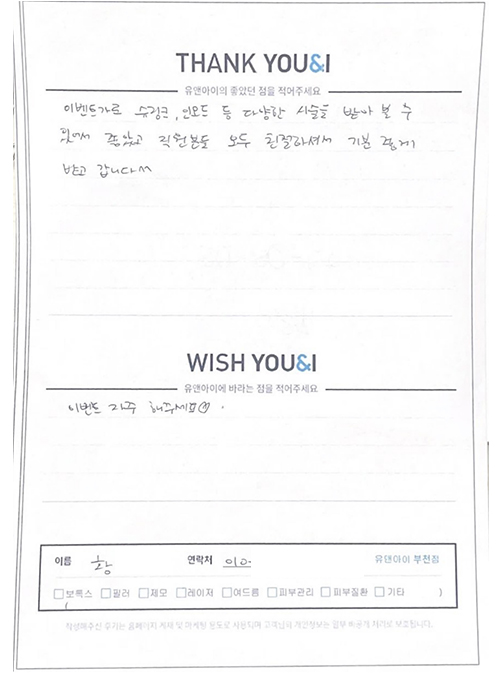 THANK YOU&I
유앤아이의 좋았던 점을 적어주세요
이벤트가로 슈링크, 인모드 등 다양한 시술을 받아 볼 수
있어서 좋았고 직원분들 모두 친절하셔서 기분 좋게
받고 갑니다^^
WISH YOU&I
유앤아이에 바라는 점을 적어주세요
이벤트 자주 해주세요♡.
이름 황 연락처 010- 유앤아이 부천점
보톡스 필러 제모 레이저 여드름 피부관리 피부질환 기타 )
(
작성해주신 후기는 홈페이지 게재 및 마케팅 용도로 사용되며 고객님의 개인정보는 일부 비공개 처리로 보호됩니다.